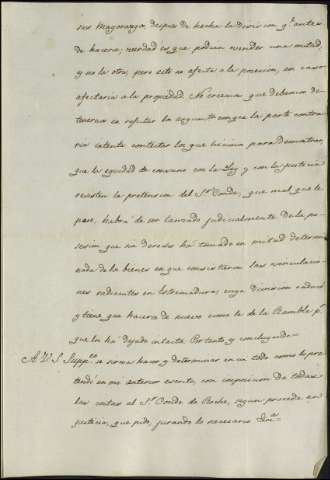 sus Mayorazgos, despues de hecha la division qe. antes
de hacerse; verdad es que podria vender una mitad,
y no la otra, pero esto no afecta a la posesion, en caso
afectaria a la propiedad. No creemos que debemos de
tenernos en refutar los argumentos con que la parte contra
ria intenta contestar los que hicimos para demostrar,
que la equidad de consuno con la Ley y con la justicia
resisten la pretension del Sr. Conde, que mal que le
pese, habra de ser lanzado judicialmente de la po
sesion que sin derecho ha tomado en mitad determi
nada de los bienes en que consistieron las vinculacio
nes radicantes en Estremadura, cuya division caducó
y tiene que hacerse de nuevo como la de la Rambla pr.
que la ha dejado intacta. Por tanto y concluyendo=
A V. S. Suppco. se sirva haver y determinar en un todo como lo pre
tendí en mi anterior escrito, con imposicion de todas
las costas al Sr. Conde de Roche, segun procede en
justicia, que pido, jurando lo necesario &ca.